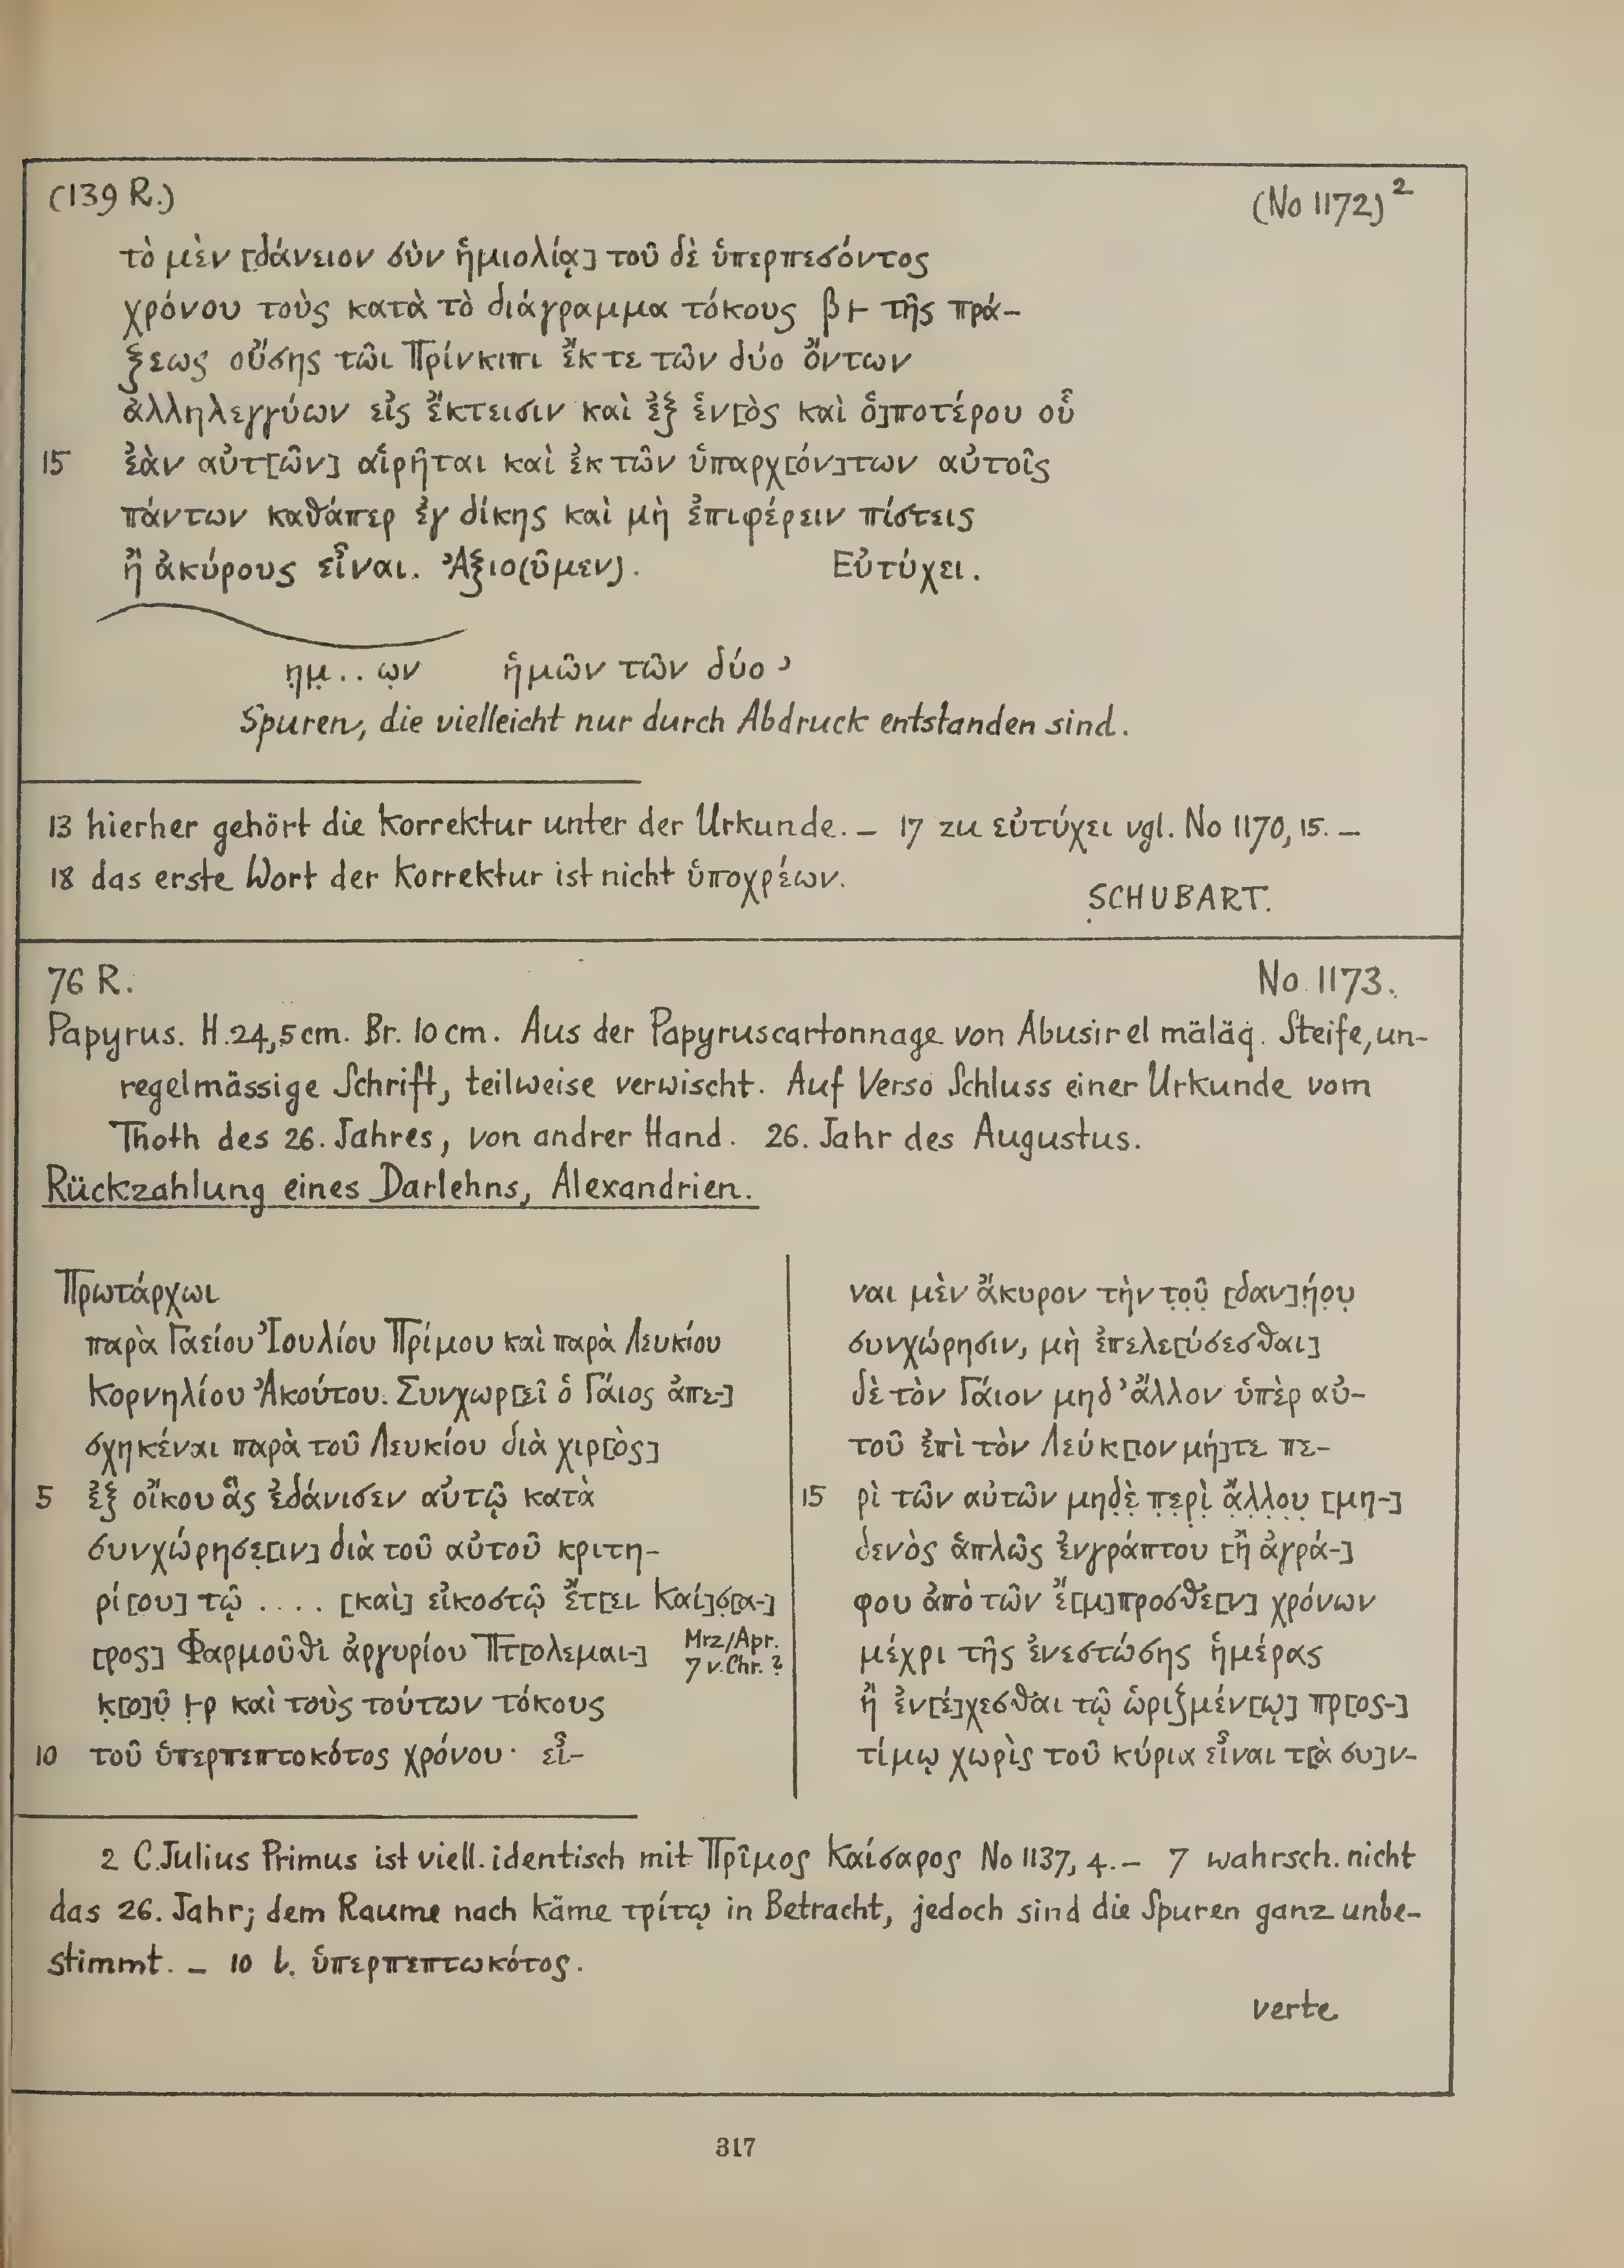 (139 R.)
(No 1172)²
τὸ μὲν [δάνειον σὺν ἡμιολίᾳ] τοῦ δὲ ὑπερπεσόντος
χρόνου τοὺς κατὰ τὸ διάγραμμα τόκους β⊢ τῆς πρά-
ξεως οὔσης τῶι Πρίνκιπι ἔκ τε τῶν δύο ὄντων
ἀλληλεγγύων εἰς ἔκτεισιν καὶ ἐξ ἑν[ὸς καὶ ὁ]ποτέρου οὗ
15 ἐὰν αὐτ[ῶν] αἱρῆται καὶ ἐκ τῶν ὑπαρχ[όν]των αὐτοῖς
πάντων καθάπερ ἐγ δίκης καὶ μὴ ἐπιφέρειν πίστεις
ἢ ἀκύρους εἶναι. Ἀξιο(ῦμεν). Εὐτύχει.
η̣μ̣ . . ω̣ν ἡμῶν τῶν δύο ʾ
Spuren, die vielleicht nur durch Abdruck entstanden sind.
13 hierher gehört die Korrektur unter der Urkunde. – 17 zu εὐτύχει vgl. No 1170, 15. –
18 das erste Wort der Korrektur ist nicht ὑποχρέων.
SCHUBART.
76 R.
No 1173.
Papyrus. H. 24,5 cm. Br. 10 cm. Aus der Papyruscartonnage von Abusir el mäläq. Steife, un-
regelmässige Schrift, teilweise verwischt. Auf Verso Schluss einer Urkunde vom
Thoth des 26. Jahres, von andrer Hand. 26. Jahr des Augustus.
Rückzahlung eines Darlehns, Alexandrien.
Πρωτάρχωι
παρὰ Γαείου Ἰουλίου Πρίμου καὶ παρὰ Λευκίου
Κορνηλίου Ἀκούτου. Συνχωρ[εῖ ὁ Γάιος ἀπε-]
σχηκέναι παρὰ τοῦ Λευκίου διὰ χιρ[ὸς]
5 ἐξ οἴκου ἃς ἐδάνισεν αὐτῷ κατὰ
συνχώρησε̣[ιν] διὰ τοῦ αὐτοῦ κριτη-
ρί[ου] τῷ . . . . [καὶ] εἰκοστῷ ἔτ[ει Καί]σ[α-]
[ρος] Φαρμοῦθι ἀργυρίου Πτ[ολεμαι-]
Mrz/Apr.
7 v. Chr. ?
κ̣[ο]ῦ̣ ⊢ρ καὶ τοὺς τούτων τόκους
10 τοῦ ὑπερπεπτοκότος χρόνου· εἶ-
ναι μὲν ἄκυρον τὴν τ̣ο̣ῦ̣ [δαν]ή̣ο̣υ̣
συνχώρησιν, μὴ ἐπελε[ύσεσθαι]
δὲ τὸν Γάιον μηδ’ ἄλλον ὑπὲρ αὐ-
τοῦ ἐπὶ τὸν Λεύκ[ιον μή]τε πε-
15 ρὶ τῶν αὐτῶν μηδ̣ὲ̣ π̣ε̣ρ̣ὶ̣ ἄ̣λ̣λ̣ο̣υ̣ [μη-]
δενὸς ἁπλῶς ἐνγράπτου [ἢ ἀγρά-]
φου ἀπὸ τῶν ἔ[μ]προσθε[ν] χρόνων
μέχρι τῆς ἐνεστώσης ἡμέρας
ἢ ἐν[έ]χεσθαι τῷ ὡριζμέν[ῳ] πρ[οσ-]
τίμῳ χωρὶς τοῦ κύρια εἶναι τ[ὰ συ]ν-
2 C. Julius Primus ist viell. identisch mit Πρῖμος Καίσαρος No 1137, 4. – 7 wahrsch. nicht
das 26. Jahr; dem Raume nach käme τρίτῳ in Betracht, jedoch sind die Spuren ganz unbe-
stimmt. – 10 l. ὑπερπεπτωκότος.
verte
317